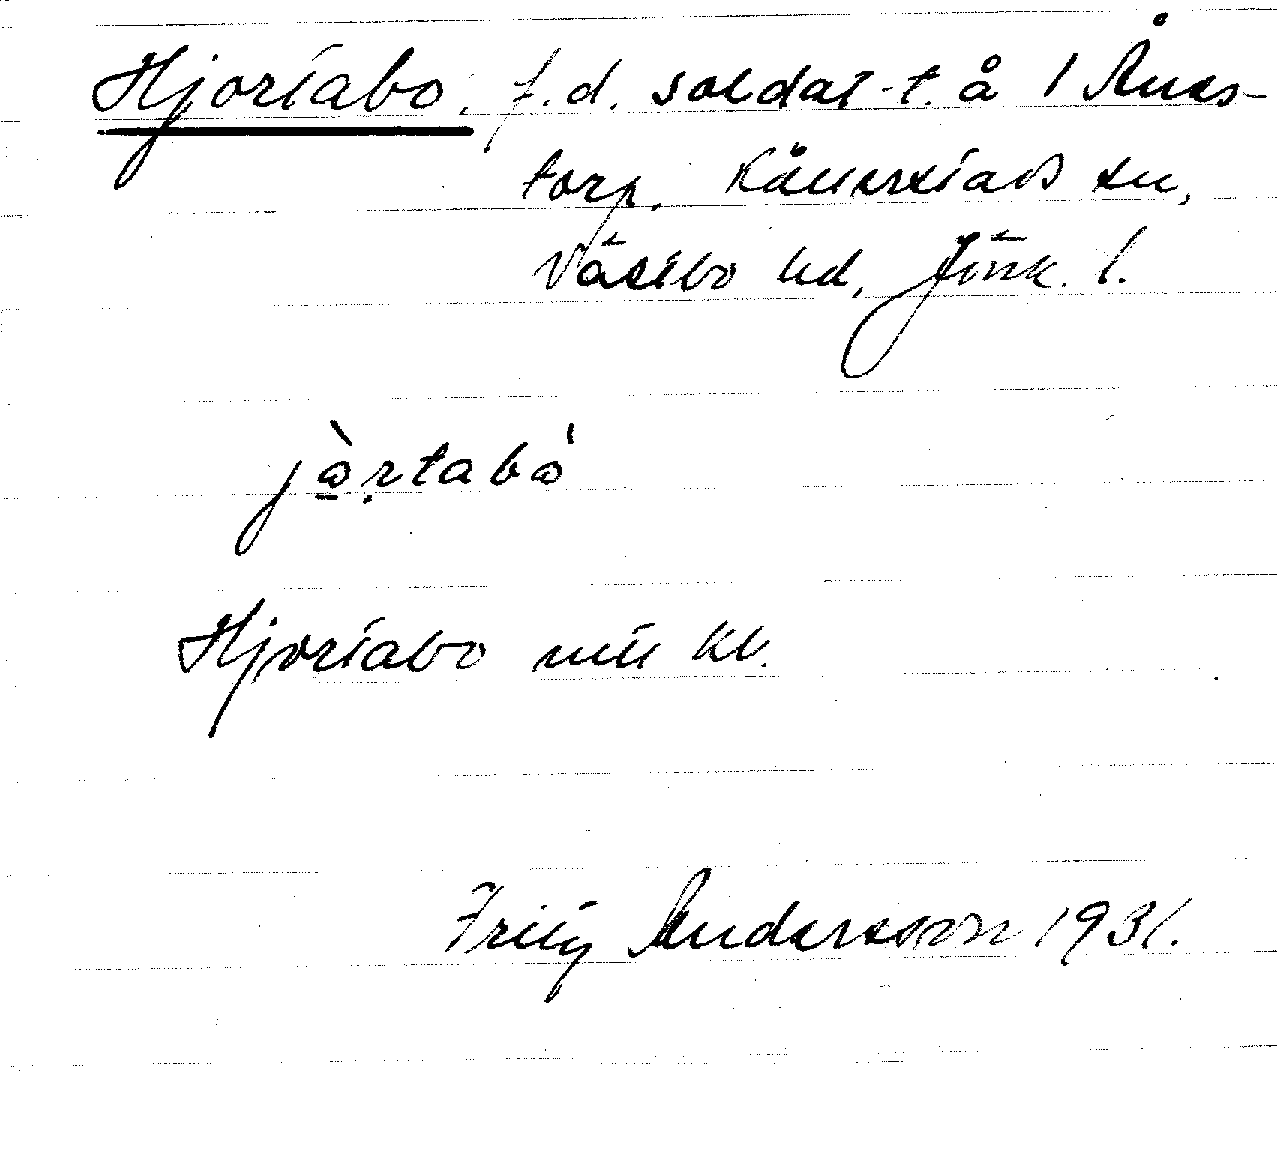 Hjortabo. f.d. soldat-t. å 1 Ånas-
torp. Källerstads sn,
Västbo hd, Jönk. l.
jòrtabó
Hjortabo mtl kb.
Fritz Andersson 1931.